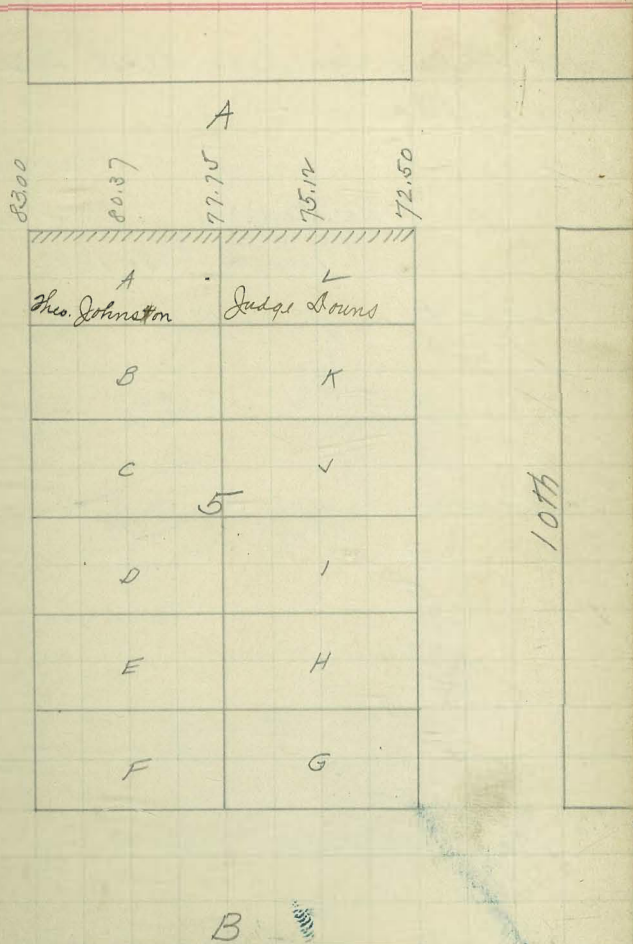 A
83.00 80.37 77.75 75.12 72.50
A L
Theo. Johnston Judge Downs
B K
C J
5
D I
10th
E H
F G
B